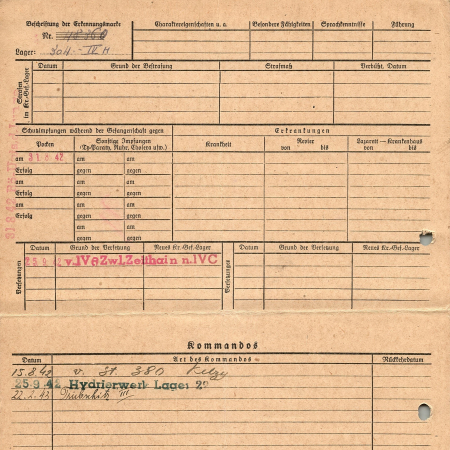 Beschriftung der Erkennungsmarke
Nr. 48360
Lager: 304 - IV H
Charaktereigenschaften u. a.
Besondere Fähigkeiten
Sprachkenntnisse
Führung
Strafen im Kr.-Gef.-Lager
Datum
Grund der Bestrafung
Strafmaß
Verbüßt, Datum
Schutzimpfungen während der Gefangenschaft gegen
Erkrankungen
Pocken
Sonstige Impfungen (Ty-Paraty, Ruhr, Cholera usw.)
Krankheit
Revier
von bis
Lazarett – Krankenhaus
von bis
am 31 8 42
am
Erfolg
gegen
am
am
Erfolg
gegen
am
am
Erfolg
gegen
am
gegen
am
gegen
Versetzungen
Datum
Grund der Versetzung
Neues Kr.-Gef.-Lager
25.9.42 v.IVa Zw.L.Zeithain n.IVC
Versetzungen
Datum
Grund der Versetzung
Neues Kr.-Gef.-Lager
Kommandos
Datum
Art des Kommandos
Rückkehrdatum
15.8.42 v. St. 380
25.9.42 Hydrierwerk Lager 29
III